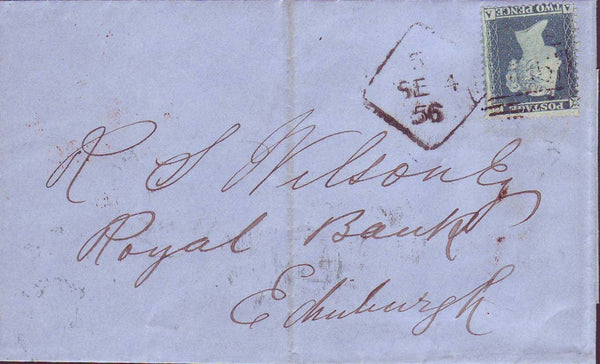 A TWO PENCE A
POSTAGE
3
SE 4
56
R S Wilson Esq
Royal Bank
Edinburgh